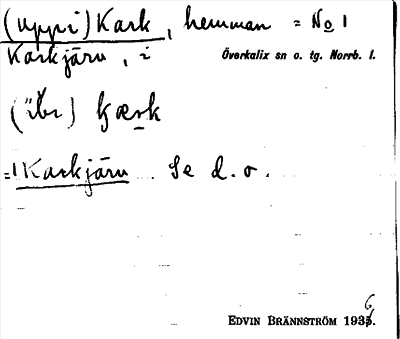 (Uppi) Kark, hemman = No 1
Karkjärv, i
Överkalix sn o. tg. Norrb. l.
kærk
=1 Karkjärv Se d. o.
EDVIN BRÄNNSTRÖM 1936.